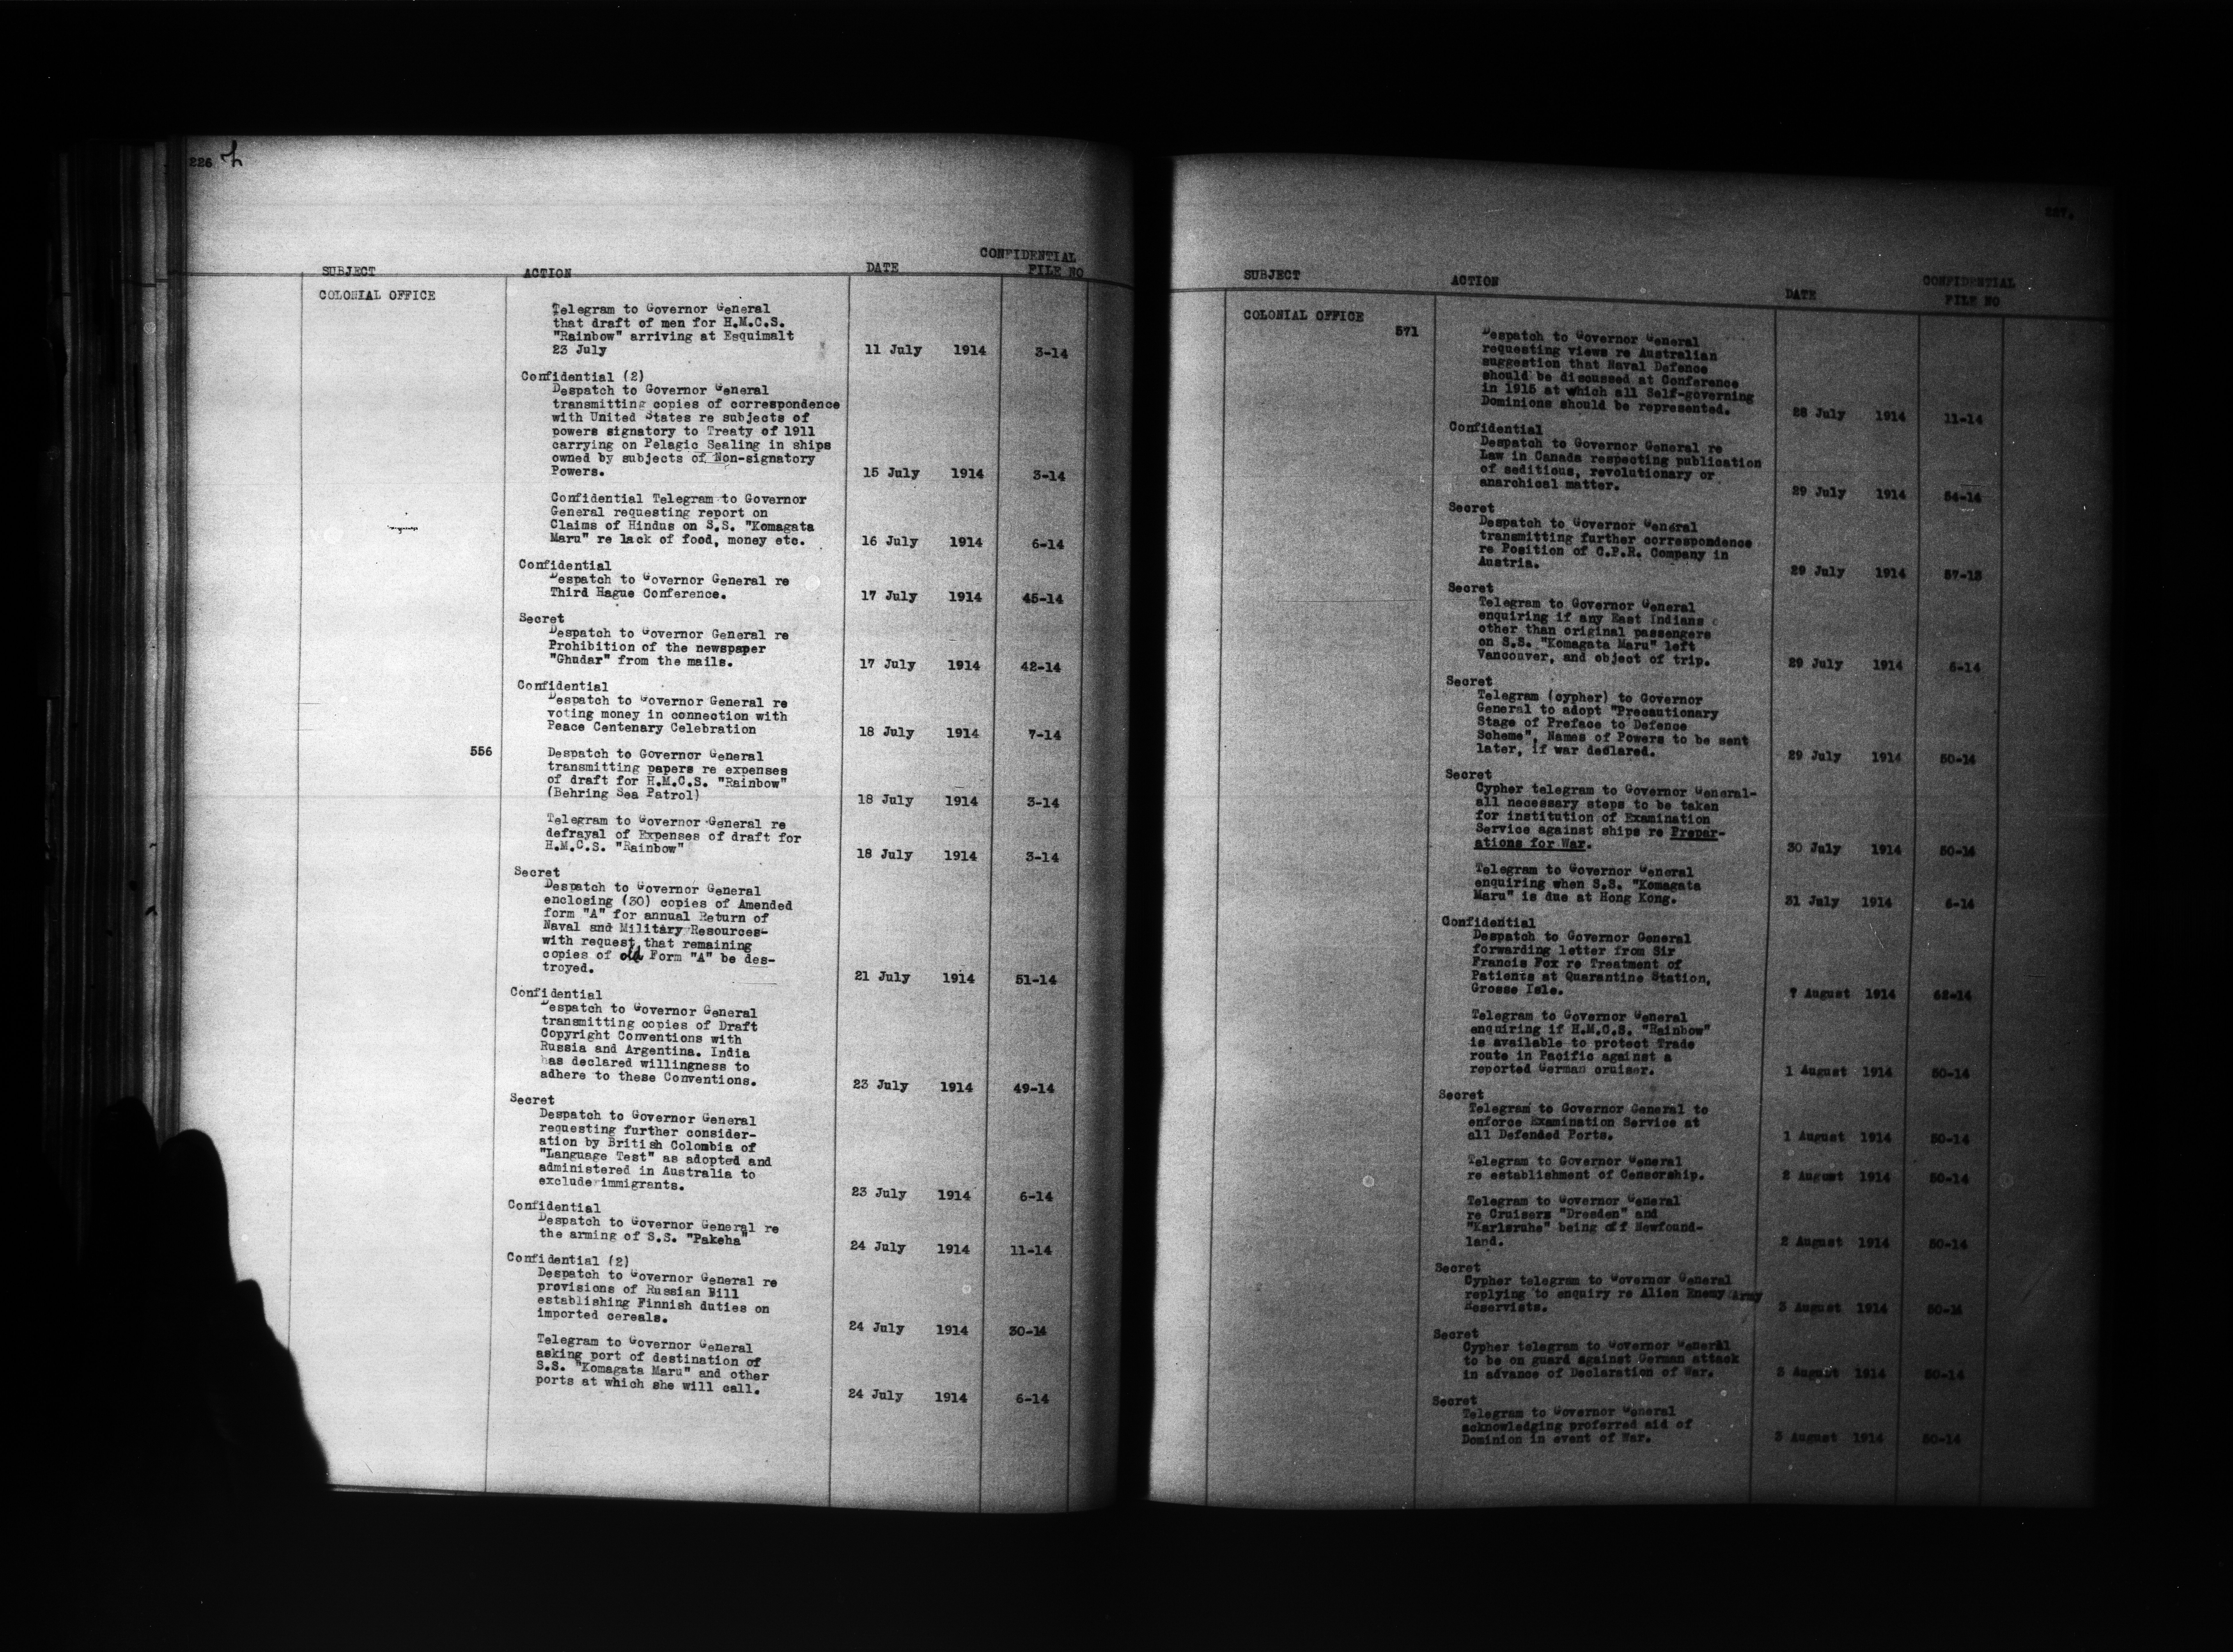 226
SUBJECT ACTION DATE CONFIDENTIAL FILE NO
COLONIAL OFFICE
Telegram to Governor General
that draft of men for H.M.C.S.
"Rainbow" arriving at Esquimalt
23 July 11 July 1914 3-14
Confidential (2)
Despatch to Governor General
transmitting copies of correspondence
with United States re subjects of
powers signatory to Treaty of 1911
carrying on Pelagic Sealing in ships
owned by subjects of Non-signatory
Powers. 15 July 1914 3-14
Confidential Telegram to Governor
General requesting report on
Claims of Hindus on S.S. "Komagata
Maru" re lack of food, money etc. 16 July 1914 6-14
Confidential
Despatch to Governor General re
Third Hague Conference. 17 July 1914 45-14
Secret
Despatch to Governor General re
Prohibition of the newspaper
"Ghudar" from the mails. 17 July 1914 42-14
Confidential
Despatch to Governor General re
voting money in connection with
Peace Centenary Celebration 18 July 1914 7-14
556 Despatch to Governor General
transmitting papers re expenses
of draft for H.M.C.S. "Rainbow"
(Behring Sea Patrol) 18 July 1914 3-14
Telegram to Governor General re
defrayal of Expenses of draft for
H.M.C.S. "Rainbow" 18 July 1914 3-14
Secret
Despatch to Governor General
enclosing (30) copies of Amended
form "A" for annual Return of
Naval and Military Resources-
with request that remaining
copies of old Form "A" be des-
troyed. 21 July 1914 51-14
Confidential
Despatch to Governor General
transmitting copies of Draft
Copyright Conventions with
Russia and Argentina. India
has declared willingness to
adhere to these Conventions. 23 July 1914 49-14
Secret
Despatch to Governor General
requesting further consider-
ation by British Colombia of
"Language Test" as adopted and
administered in Australia to
exclude immigrants. 23 July 1914 6-14
Confidential
Despatch to Governor General re
the arming of S.S. "Pakeha" 24 July 1914 11-14
Confidential (2)
Despatch to Governor General re
provisions of Russian Bill
establishing Finnish duties on
imported cereals. 24 July 1914 30-14
Telegram to Governor General
asking port of destination of
S.S. "Komagata Maru" and other
ports at which she will call. 24 July 1914 6-14
227.
SUBJECT ACTION DATE CONFIDENTIAL FILE NO
COLONIAL OFFICE
571 Despatch to Governor General
requesting views re Australian
suggestion that Naval Defence
should be discussed at Conference
in 1915 at which all Self-governing
Dominions should be represented. 28 July 1914 11-14
Confidential
Despatch to Governor General re
Law in Canada respecting publication
of seditious, revolutionary or
anarchical matter. 29 July 1914 54-14
Secret
Despatch to Governor General
transmitting further correspondence
re Position of C.P.R. Company in
Austria. 29 July 1914 57-13
Secret
Telegram to Governor General
enquiring if any East Indians
other than original passengers
on S.S. "Komagata Maru" left
Vancouver, and object of trip. 29 July 1914 6-14
Secret
Telegram (cypher) to Governor
General to adopt "Precautionary
Stage of Preface to Defence
Scheme", Names of Powers to be sent
later, if war declared. 29 July 1914 50-14
Secret
Cypher telegram to Governor General-
all necessary steps to be taken
for institution of Examination
Service against ships re Prepar-
ations for War. 30 July 1914 50-14
Telegram to Governor General
enquiring when S.S. "Komagata
Maru" is due at Hong Kong. 31 July 1914 6-14
Confidential
Despatch to Governor General
forwarding letter from Sir
Francis Fox re Treatment of
Patients at Quarantine Station,
Grosse Isle. 7 August 1914 62-14
Telegram to Governor General
enquiring if H.M.C.S. "Rainbow"
is available to protect Trade
route in Pacific against a
reported German cruiser. 1 August 1914 50-14
Secret
Telegram to Governor General to
enforce Examination Service at
all Defended Ports. 1 August 1914 50-14
Telegram to Governor General
re establishment of Censorship. 2 August 1914 50-14
Telegram to Governor General
re Cruisers "Dresden" and
"Karlsruhe" being off Newfound-
land. 2 August 1914 50-14
Secret
Cypher telegram to Governor General
replying to enquiry re Alien Enemy Army
Reservists. 3 August 1914 50-14
Secret
Cypher telegram to Governor General
to be on guard against German attack
in advance of Declaration of War. 3 August 1914 50-14
Secret
Telegram to Governor General
acknowledging proferred aid of
Dominion in event of War. 3 August 1914 50-14